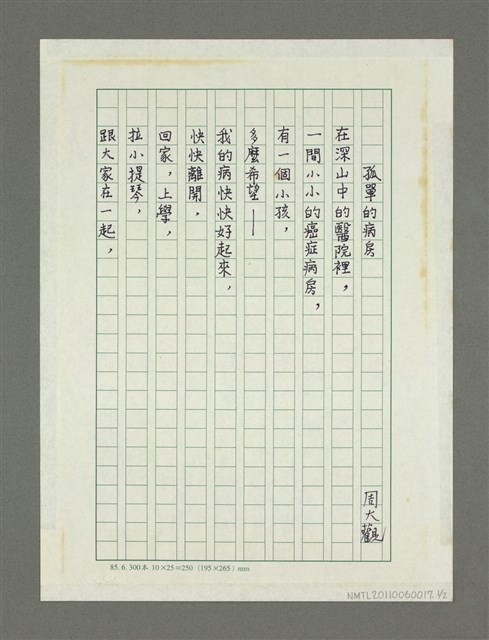 孤單的病房
周大觀
在深山中的醫院裡，
一間小小的癌症病房，
有一個小孩，
多麼希望——
我的病快快好起來，
快快離開，
回家，上學，
拉小提琴，
跟大家在一起，
85. 6. 300本 10×25=250 (195×265) mm
NMTL20110060017 1/2